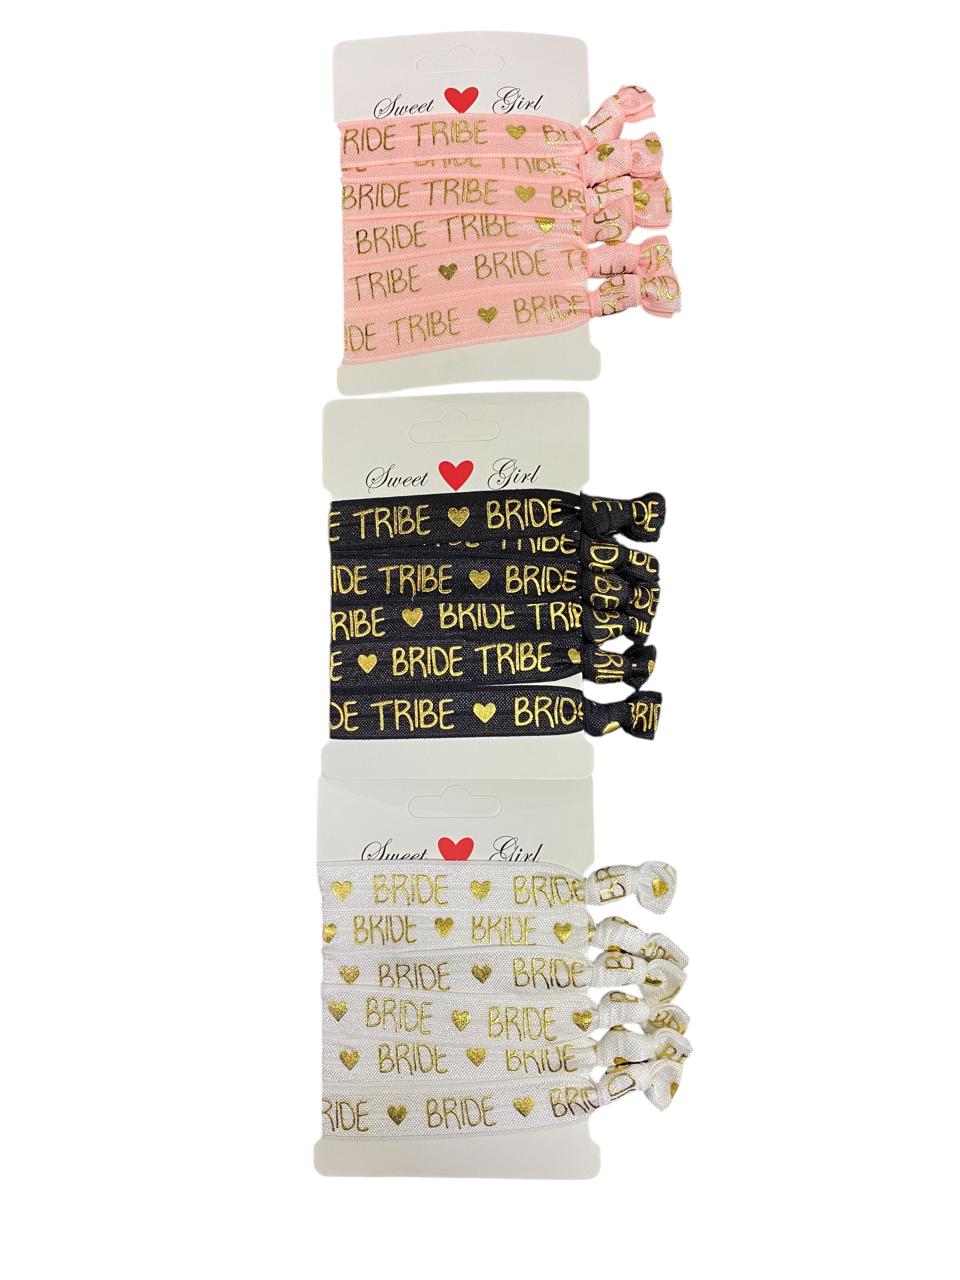 Sweet Girl
RIDE TRIBE BR
BRIDE TRIBE
BRIDE TRIBE BR
BRIDE TRIBE
TRIBE BRIDE T
IDE TRIBE BRIDE
Sweet Girl
E TRIBE BRIDE DE
TRIBE IDE
IDE TRIBE BRIDE DE
RIBE BRIDE TRIB
E BRIDE TRIBE
DE TRIBE BRIDE BRI
Sweet Girl
BRIDE BRIDE BR
BRIDE BRIDE
BRIDE BRIDE B
BRIDE BRIDE
BRIDE BRIDE
RIDE BRIDE BRID